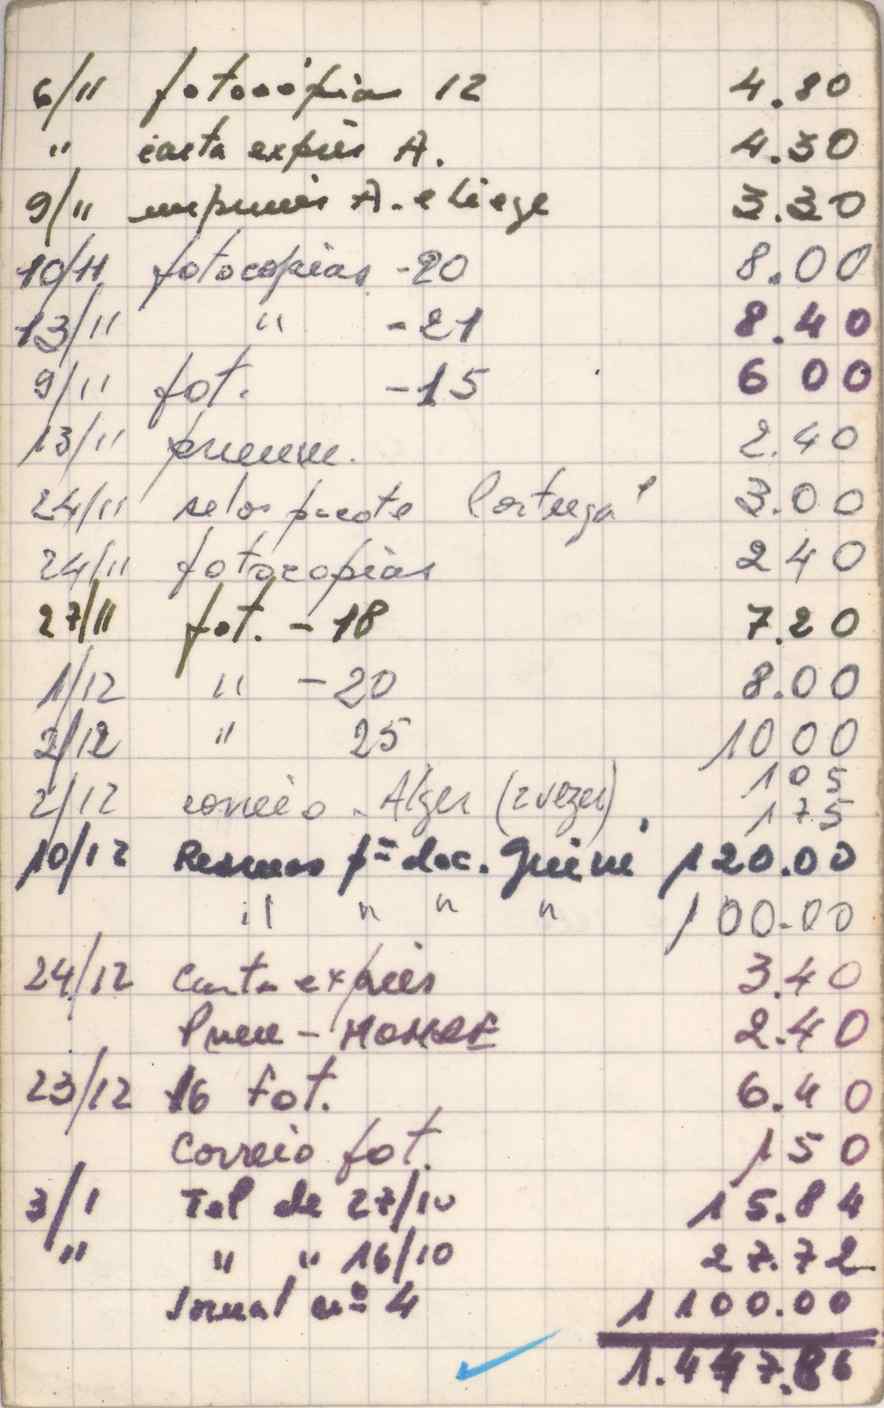 6/11 fotocópias 12 4.80
" carta exprès A. 4.30
9/11 imprimés A. e Liege 3.30
10/11 fotocopias - 20 8.00
13/11 " - 21 8.40
9/11 fot. - 15 6 00
13/11 pneum. 2.40
24/11 selos pacote Portugal 3.00
24/11 fotocopias 2 40
27/11 fot. - 18 7.20
1/12 " - 20 8.00
2/12 " 25 10 00
1 05
2/12 correio - Alger (2 vezes) 1 75
10/12 pª doc. Guiné 120.00
" " " " 100.00
24/12 Carta exprès 3.40
Pneu - 2.40
23/12 16 Fot. 6.40
Correio fot. 1 50
3/1 Tel de 27/10 15.84
" " " 16/10 27.72
Jornal nº 4 1100.00
1.447.86